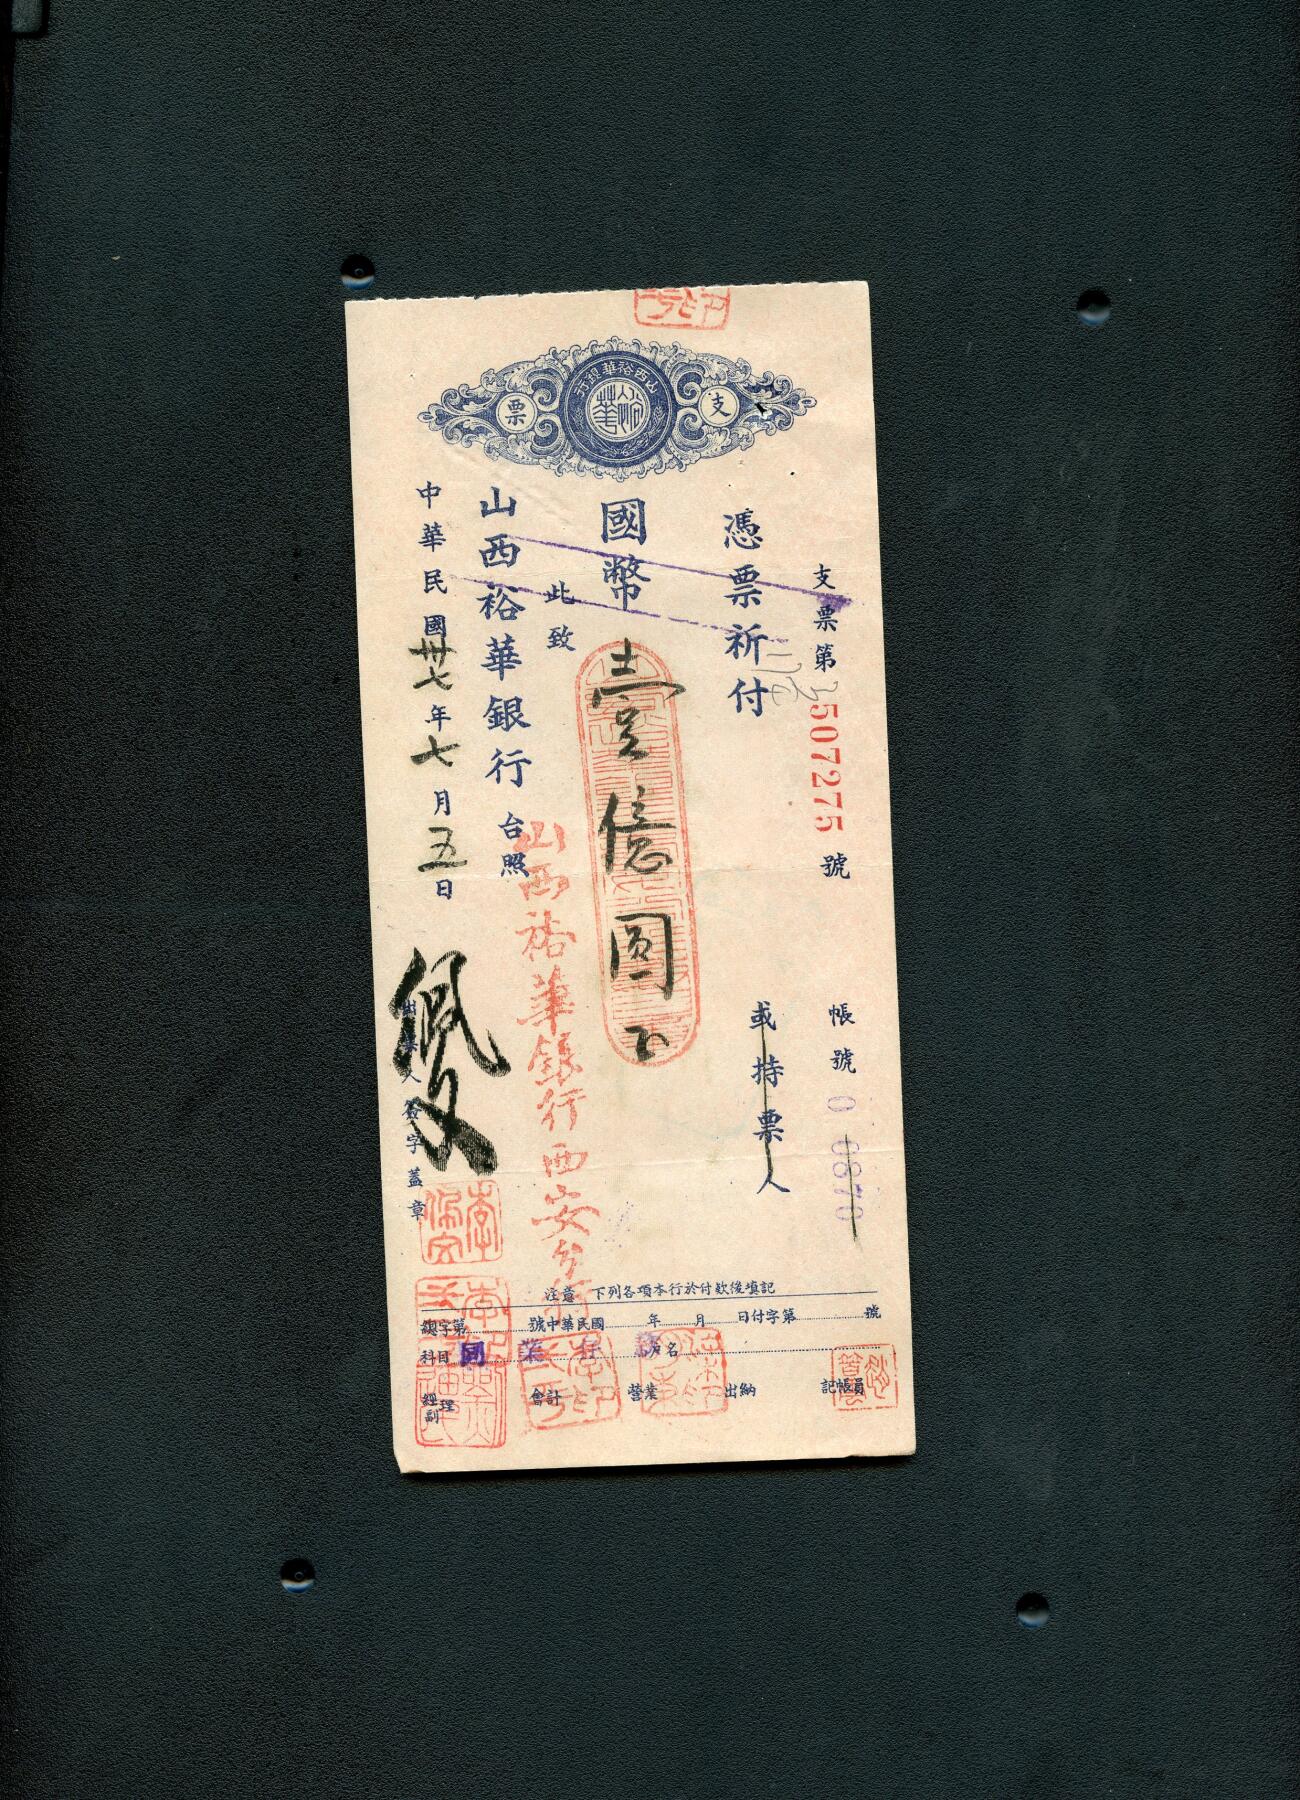 山西裕華銀行
裕華
支票
支票第507275號
帳號 0 0870
憑票祈付
或持票人
國幣壹億圓正
此致
山西裕華銀行台照
山西裕華銀行西安分行
中華民國卅七年七月五日
出票人簽字蓋章
注意 下列各項本行於付款後填記
總字第 號中華民國 年 月 日付字第 號
科目 同業存 戶名
經副理 會計 營業 出納 記帳員